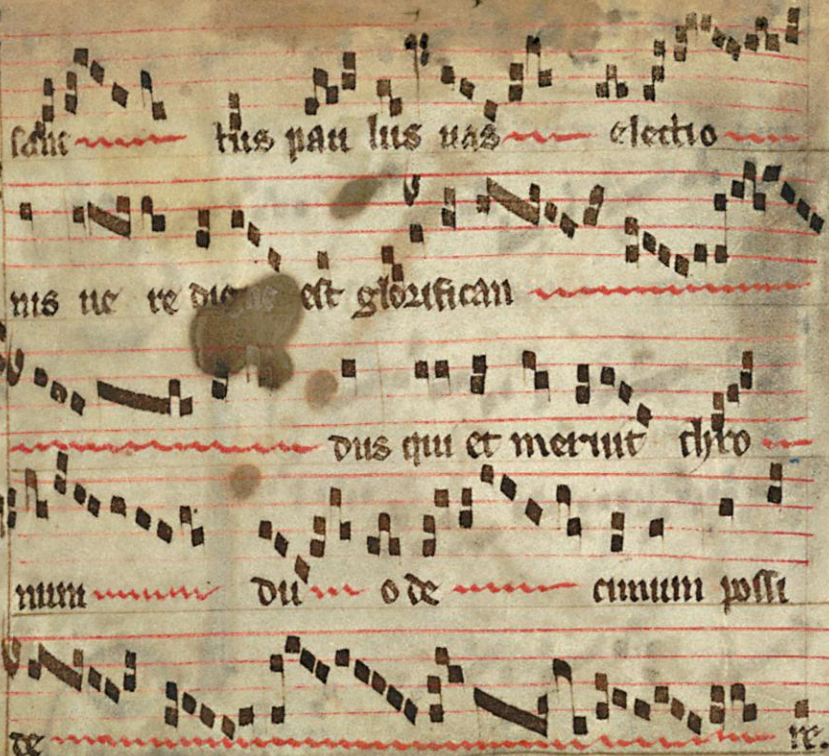 sanc tus pau lus uas electio
nis ue re dignus est glorifican
dus qui et meruit thro
num du o de cimum possi
de re